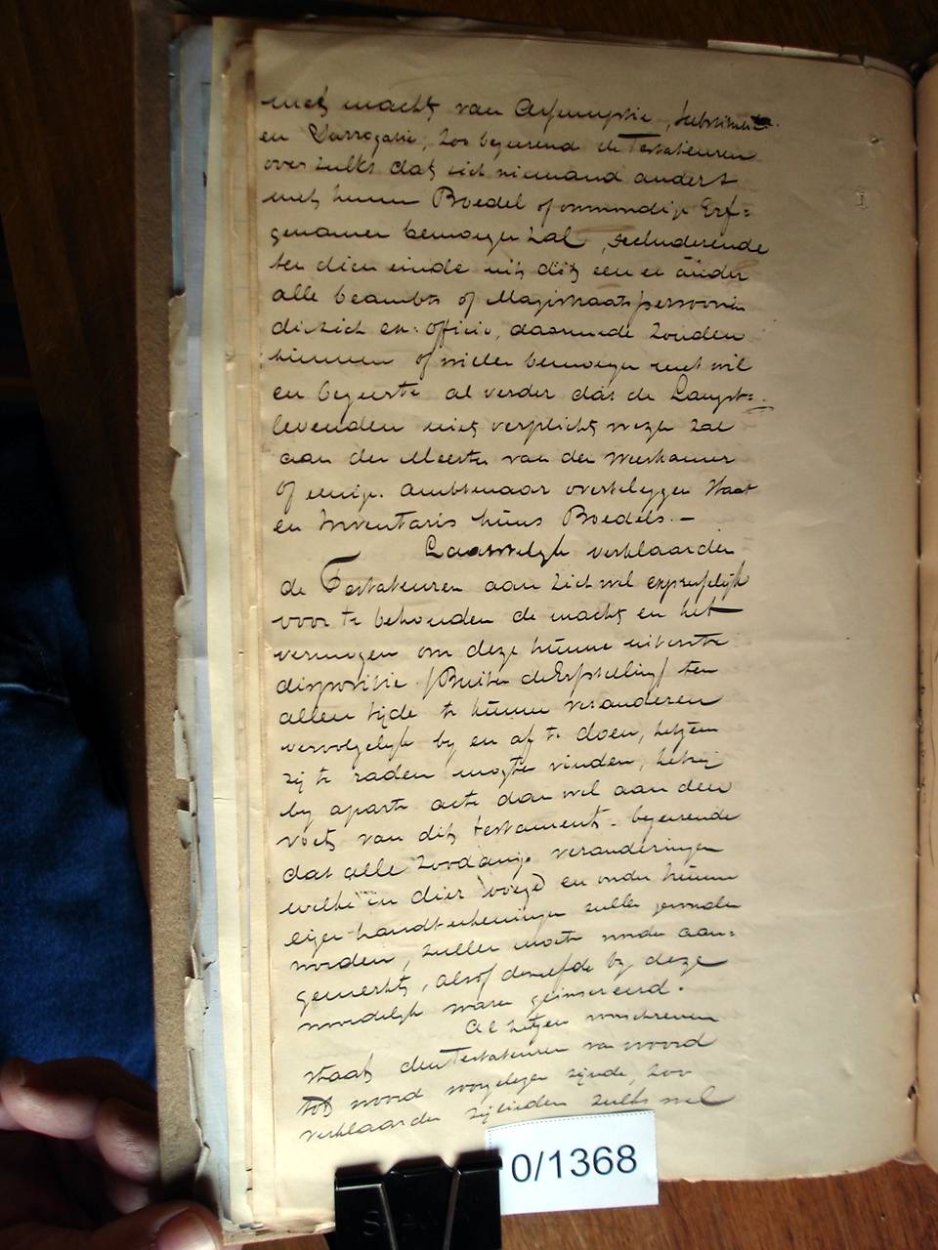 met macht van Assumptie, Substitutie
en Surrogatie, zoo begeerend de Testateuren
over zulks dat zich niemand anders
met hunn Boedel of onmondige Erf=
genamen bemoeyen zal, secluderende
ten dien einde uit dit een en ander
alle beambts of Magistraats persoonen
die zich ex: officio, daarmede zouden
kunnen of willen bemoeyen met wil
en begeerte al verder dat de Langst=
levenden niet verplicht wezen zal
aan den Meester van der Weeskamer
of eenige ambtenaar overteleggen Staat
en Inventaris huns Boedels.-
Laastelyk verklaarden
de Testateuren aan zich wel expresselyk
voor te behouden de macht en het
vermogen om deze hunne uiterste
dispositie /Buiten de Erfstelling/ ten
allen tijde te kunnen veranderen
vervolgelyk by en af te doen, hetgeen
zij te raden mogte vinden, hetzij
by aparte acte dan wel aan den
voet van dit testament - begeerende
dat alle zoodanige veranderingen
welke in dier voege en onder hunne
eigen handteekeningen zullen gevonden
worden, zullen moeten worden aan=
gemerkt, alsof dezelfde by deze
woordelyk waren geinsereerd.
Al hetgeen voorschreven
staat den Testateuren van woord
tot woord voorgelezen zijnde, zoo
verklaarden zij zulks wel
0/1368